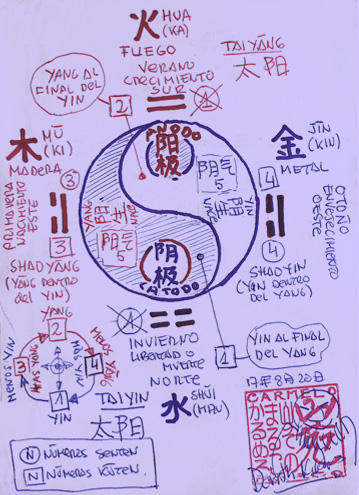 火 HUA
(KA)
FUEGO
VERANO
CRECIMIENTO
SUR
TAIYĀNG
太阳
YANG AL
FINAL DEL
YIN
2
木 MÙ
(KI)
MADERA
PRIMAVERA
NACIMIENTO
ESTE
3
3
SHAO YĀNG
(YANG DENTRO
del YIN)
金 JĪN
(KIN)
METAL
OTOÑO
ENVEJECIMIENTO
OESTE
4
4
SHAO YIN
(YIN DENTRO
del YANG)
ANODO
阳
极
阴气
5
YANG
阳
YIN
阴
阴气
5
阴
极
CATODO
INVIERNO
LIBERTAD O
MUERTE
NORTE
水 SHUǏ
(MAN)
1
YIN AL FINAL
DEL YANG
YANG
2
MENOS YANG
MENOS YIN
MAS YANG
MAS YIN
3
4
1
YIN
TAIYIN
太阳
17年8月20日
CARMELO
N NÚMEROS SENTEN
N NÚMEROS KŌTEN.